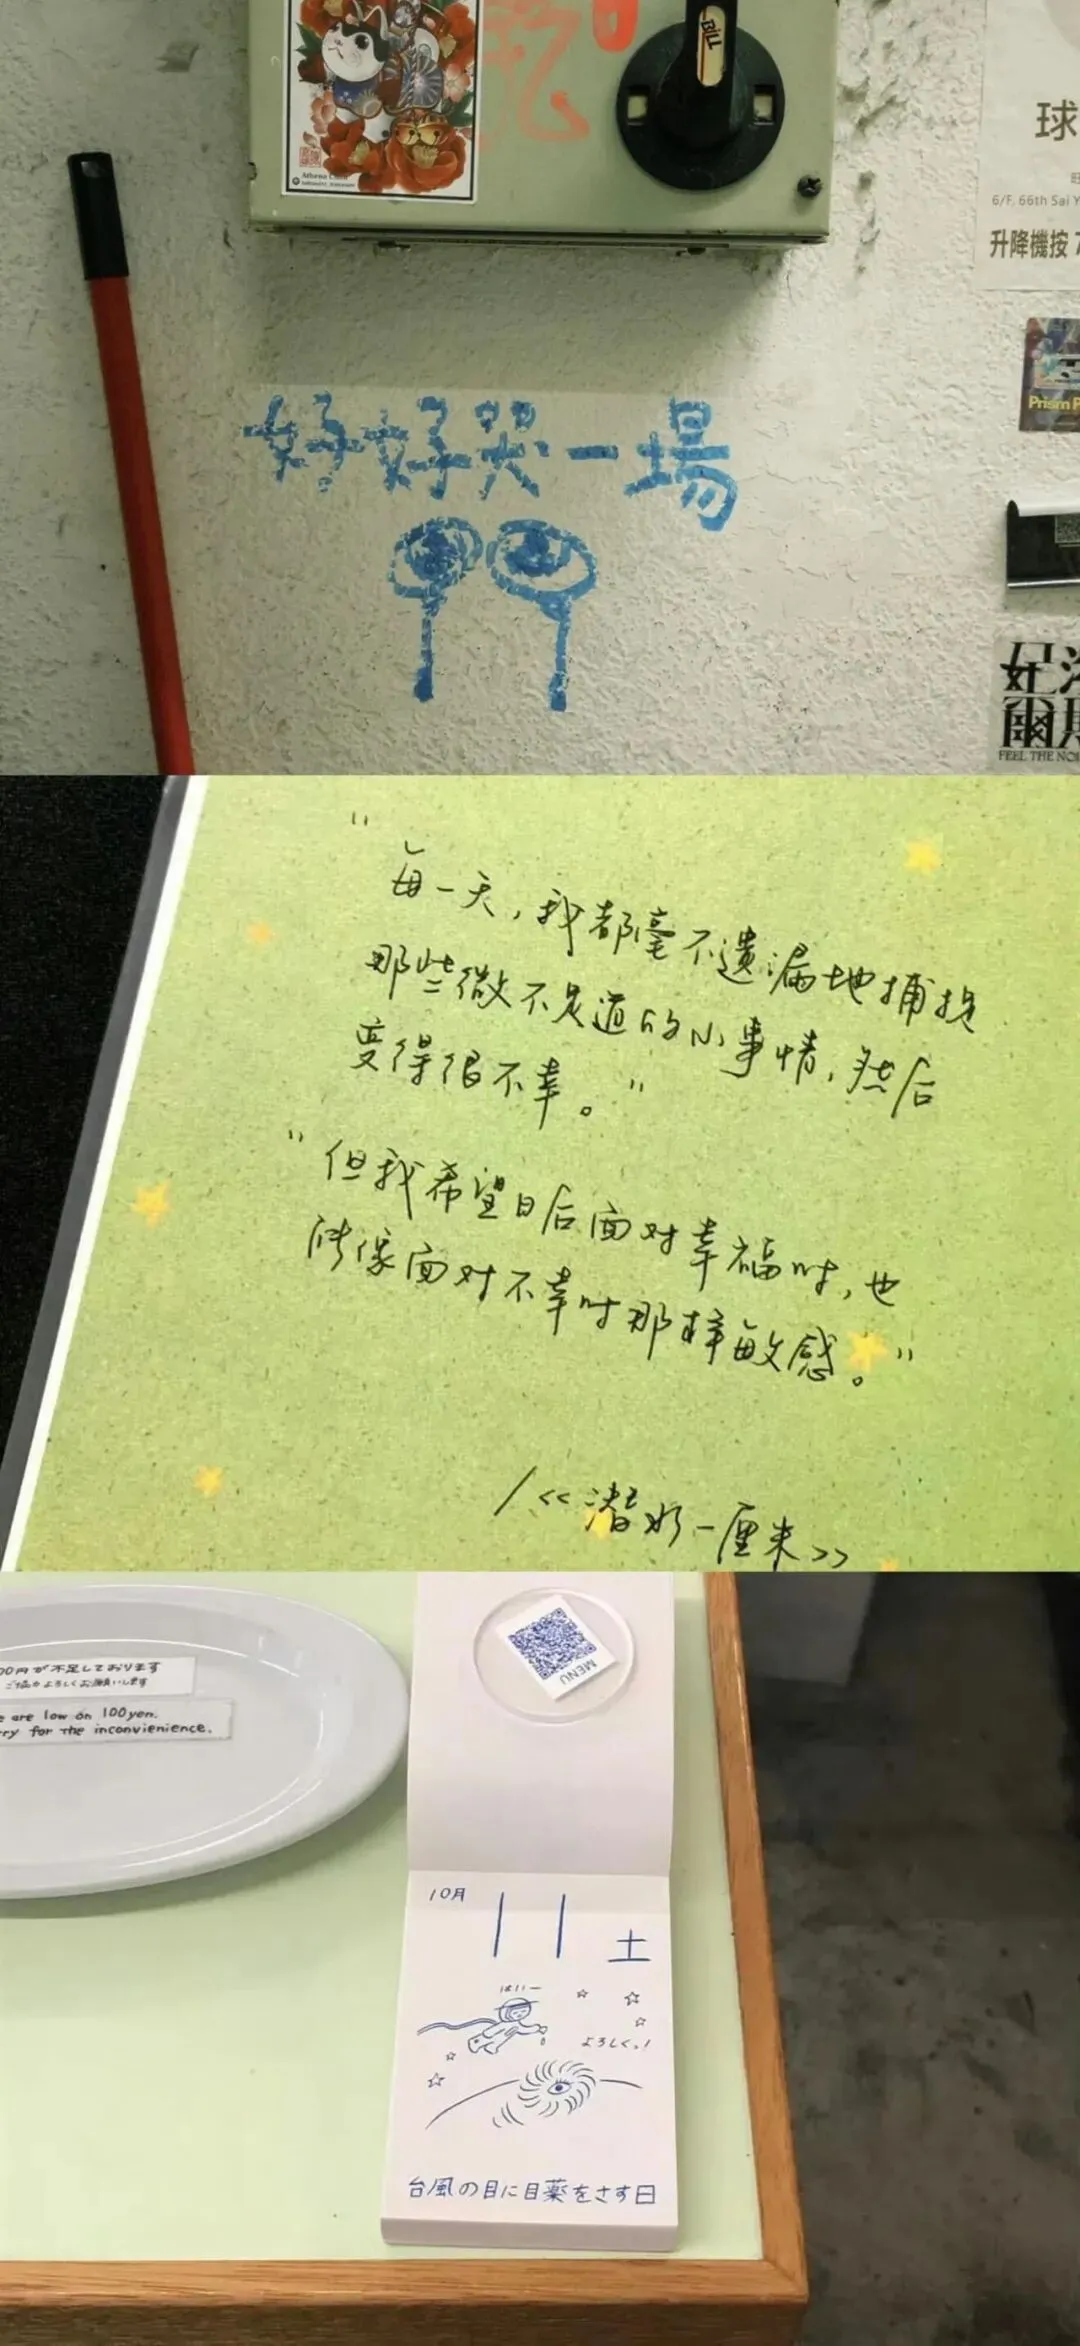 BILL
Athena Chan
球
6/F, 66th Sai Y
升降機按 7
Prism P
好好哭一場
FEEL THE NOI
“每一天，我都毫不遗漏地捕捉
那些微不足道的小事情，然后
变得很不幸。”
“但我希望日后面对幸福时，也
能像面对不幸时那样敏感。”
/《潜好一厘米》
00円が不足しております
ご協力よろしくお願いします
e are low on 100yen.
rry for the inconvienience.
MENU
10月
11 土
はいー
よろしくっ！
台風の目に目薬をさす日